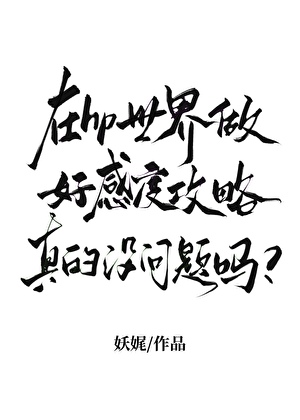 在hp世界做
好感度攻略
真的没问题吗?
妖娓/作品